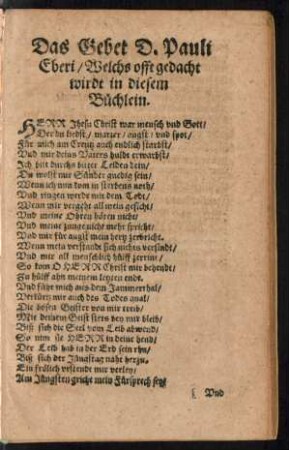 Das Gebet D. Pauli
Eberi / Welchs offt gedacht
wirdt in diesem
Büchlein.
HERR Jhesu Christ war mensch vnd Gott /
Der du liedst / marter / angst / vnd spot /
Für mich am Creutz auch endlich starbst /
Vnd mir deins Vaters huldt erwarbst /
Ich bitt durchs bitter Leiden dein /
Du wolst mir Sünder gnedig sein /
Wenn ich nun kom in sterbens noth /
Vnd ringen werde mit dem Todt /
Wenn mir vergeht all mein gesicht /
Vnd meine Ohren hören nicht /
Vnd meine zunge nicht mehr spricht /
Vnd mir für angst mein hertz zerbricht.
Wenn mein verstandt sich nichts versindt /
Vnd mir all menschlich hülff zerrint /
So kom O HERR Christ mir behendt /
Zu hülff ahn meinem letzten endt.
Vnd führ mich aus dem Jammerthal /
Verkürtz mir auch des Todes qual /
Die bösen Geister von mir treib /
Mit deinem Geist stets bey mir bleib /
Biß sich die Seel vom Leib abwend /
So nim sie HERR in deine hend /
Der Leib hab in der Erd sein rhu /
Biß sich der Jüngstag naht herzu.
Ein frölich vrstendt mir verley /
Am Jüngsten gricht mein Fürsprech sey /
Vnd